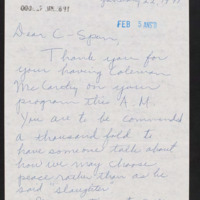 January 23, 1991
FEB 5 1991
Dear C-Span,
Thank you for
your having Coleman
McCarthy on your
program this A.M.
You are to be commended
a thousand fold to
have someone talk about
how we may choose
peace rather than as he
said "slaughter